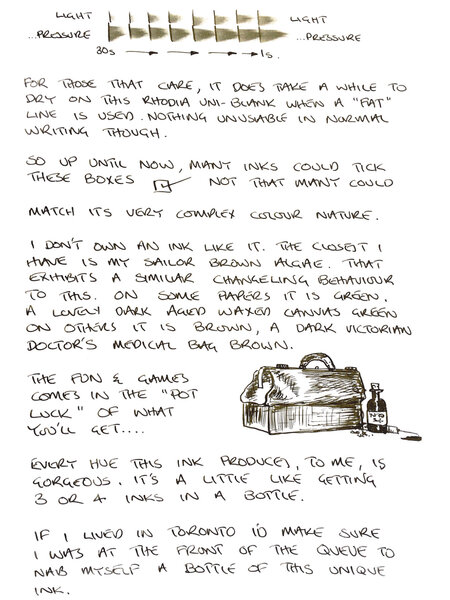 LIGHT LIGHT
...PRESSURE ...PRESSURE
30s 1s.
FOR THOSE THAT CARE, IT DOES TAKE A WHILE TO
DRY ON THIS RHODIA UNI-BLANK WHEN A "FAT"
LINE IS USED. NOTHING UNUSABLE IN NORMAL
WRITING THOUGH.
SO UP UNTIL NOW, MANY INKS COULD TICK
THESE BOXES NOT THAT MANY COULD
MATCH ITS VERY COMPLEX COLOUR NATURE.
I DON'T OWN AN INK LIKE IT. THE CLOSEST I
HAVE IS MY SAILOR BROWN ALGAE. THAT
EXHIBITS A SIMILAR CHANGELING BEHAVIOUR
TO THIS. ON SOME PAPERS IT IS GREEN.
A LOVELY DARK AGED WAXED CANVAS GREEN
ON OTHERS IT IS BROWN, A DARK VICTORIAN
DOCTOR'S MEDICAL BAG BROWN.
THE FUN & GAMES
COMES IN THE "POT
LUCK" OF WHAT
YOU'LL GET....
EVERY HUE THIS INK PRODUCES, TO ME, IS
GORGEOUS. IT'S A LITTLE LIKE GETTING
3 OR 4 INKS IN A BOTTLE.
IF I LIVED IN TORONTO I'D MAKE SURE
I WAS AT THE FRONT OF THE QUEUE TO
NAB MYSELF A BOTTLE OF THIS UNIQUE
INK.